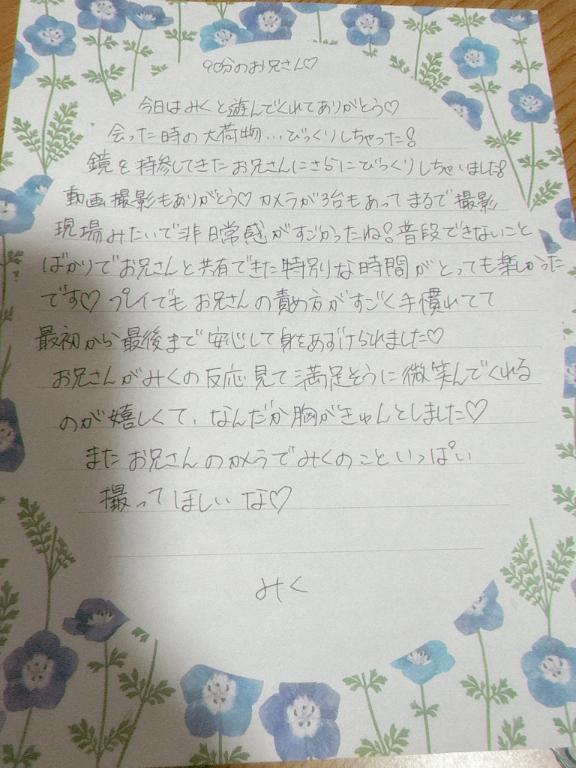 90分のお兄さん♡
今日はみくと遊んでくれてありがとう♡
会った時の大荷物…びっくりしちゃった!
鏡を持参してきたお兄さんにさらにびっくりしちゃいました!
動画撮影もありがとう♡カメラが3台もあってまるで撮影
現場みたいで非日常感がすごかったね!普段できないこと
ばかりでお兄さんと共有できた特別な時間がとっても楽しかった
です♡プレイでもお兄さんの責め方がすごく手慣れてて
最初から最後まで安心して身をあずけられました♡
お兄さんがみくの反応見て満足そうに微笑んでくれる
のが嬉しくて、なんだか胸がきゅんとしました♡
またお兄さんのカメラでみくのこといっぱい
撮ってほしいな♡
みく